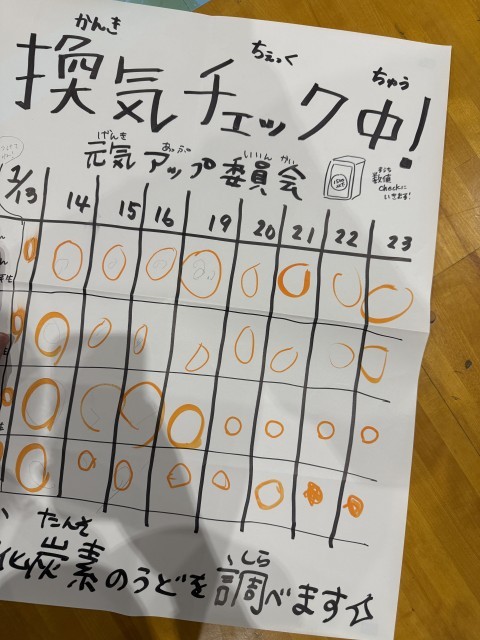 かんき ちぇっく ちゅう
換気チェック中!
げんき あっぷ いいん かい
元気アップ委員会
数値
checkに
いきます!
1/13 14 15 16 19 20 21 22 23
たんそ しら
化炭素のうどを調べます☆